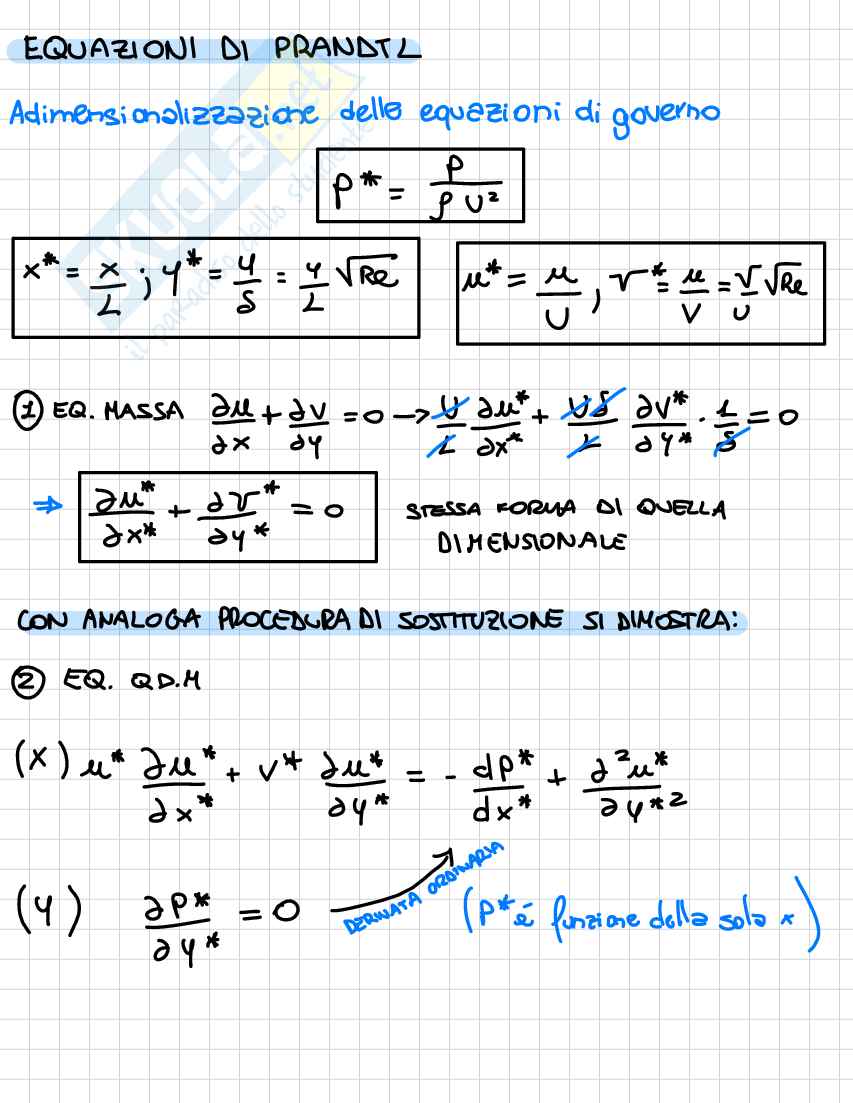 EQUAZIONI DI PRANDTL
Adimensionalizzazione delle equazioni di governo
P* = P / ρU²
x* = x/L ; y* = y/δ = y/L √Re
u* = u/U , v* = u/V = v/U √Re
① EQ. MASSA ∂u/∂x + ∂v/∂y = 0 → U/L ∂u*/∂x* + Uδ/L ∂v*/∂y* · 1/δ = 0
⇒ ∂u*/∂x* + ∂v*/∂y* = 0 STESSA FORMA DI QUELLA
DIMENSIONALE
CON ANALOGA PROCEDURA DI SOSTITUZIONE SI DIMOSTRA:
② EQ. QD.M
(X) u* ∂u*/∂x* + v* ∂u*/∂y* = - dP*/dx* + ∂²u*/∂y*²
(Y) ∂P*/∂y* = 0 DERIVATA ORDINARIA (P* é funzione della sola x)
SKUOLA.net
il paradiso dello studente